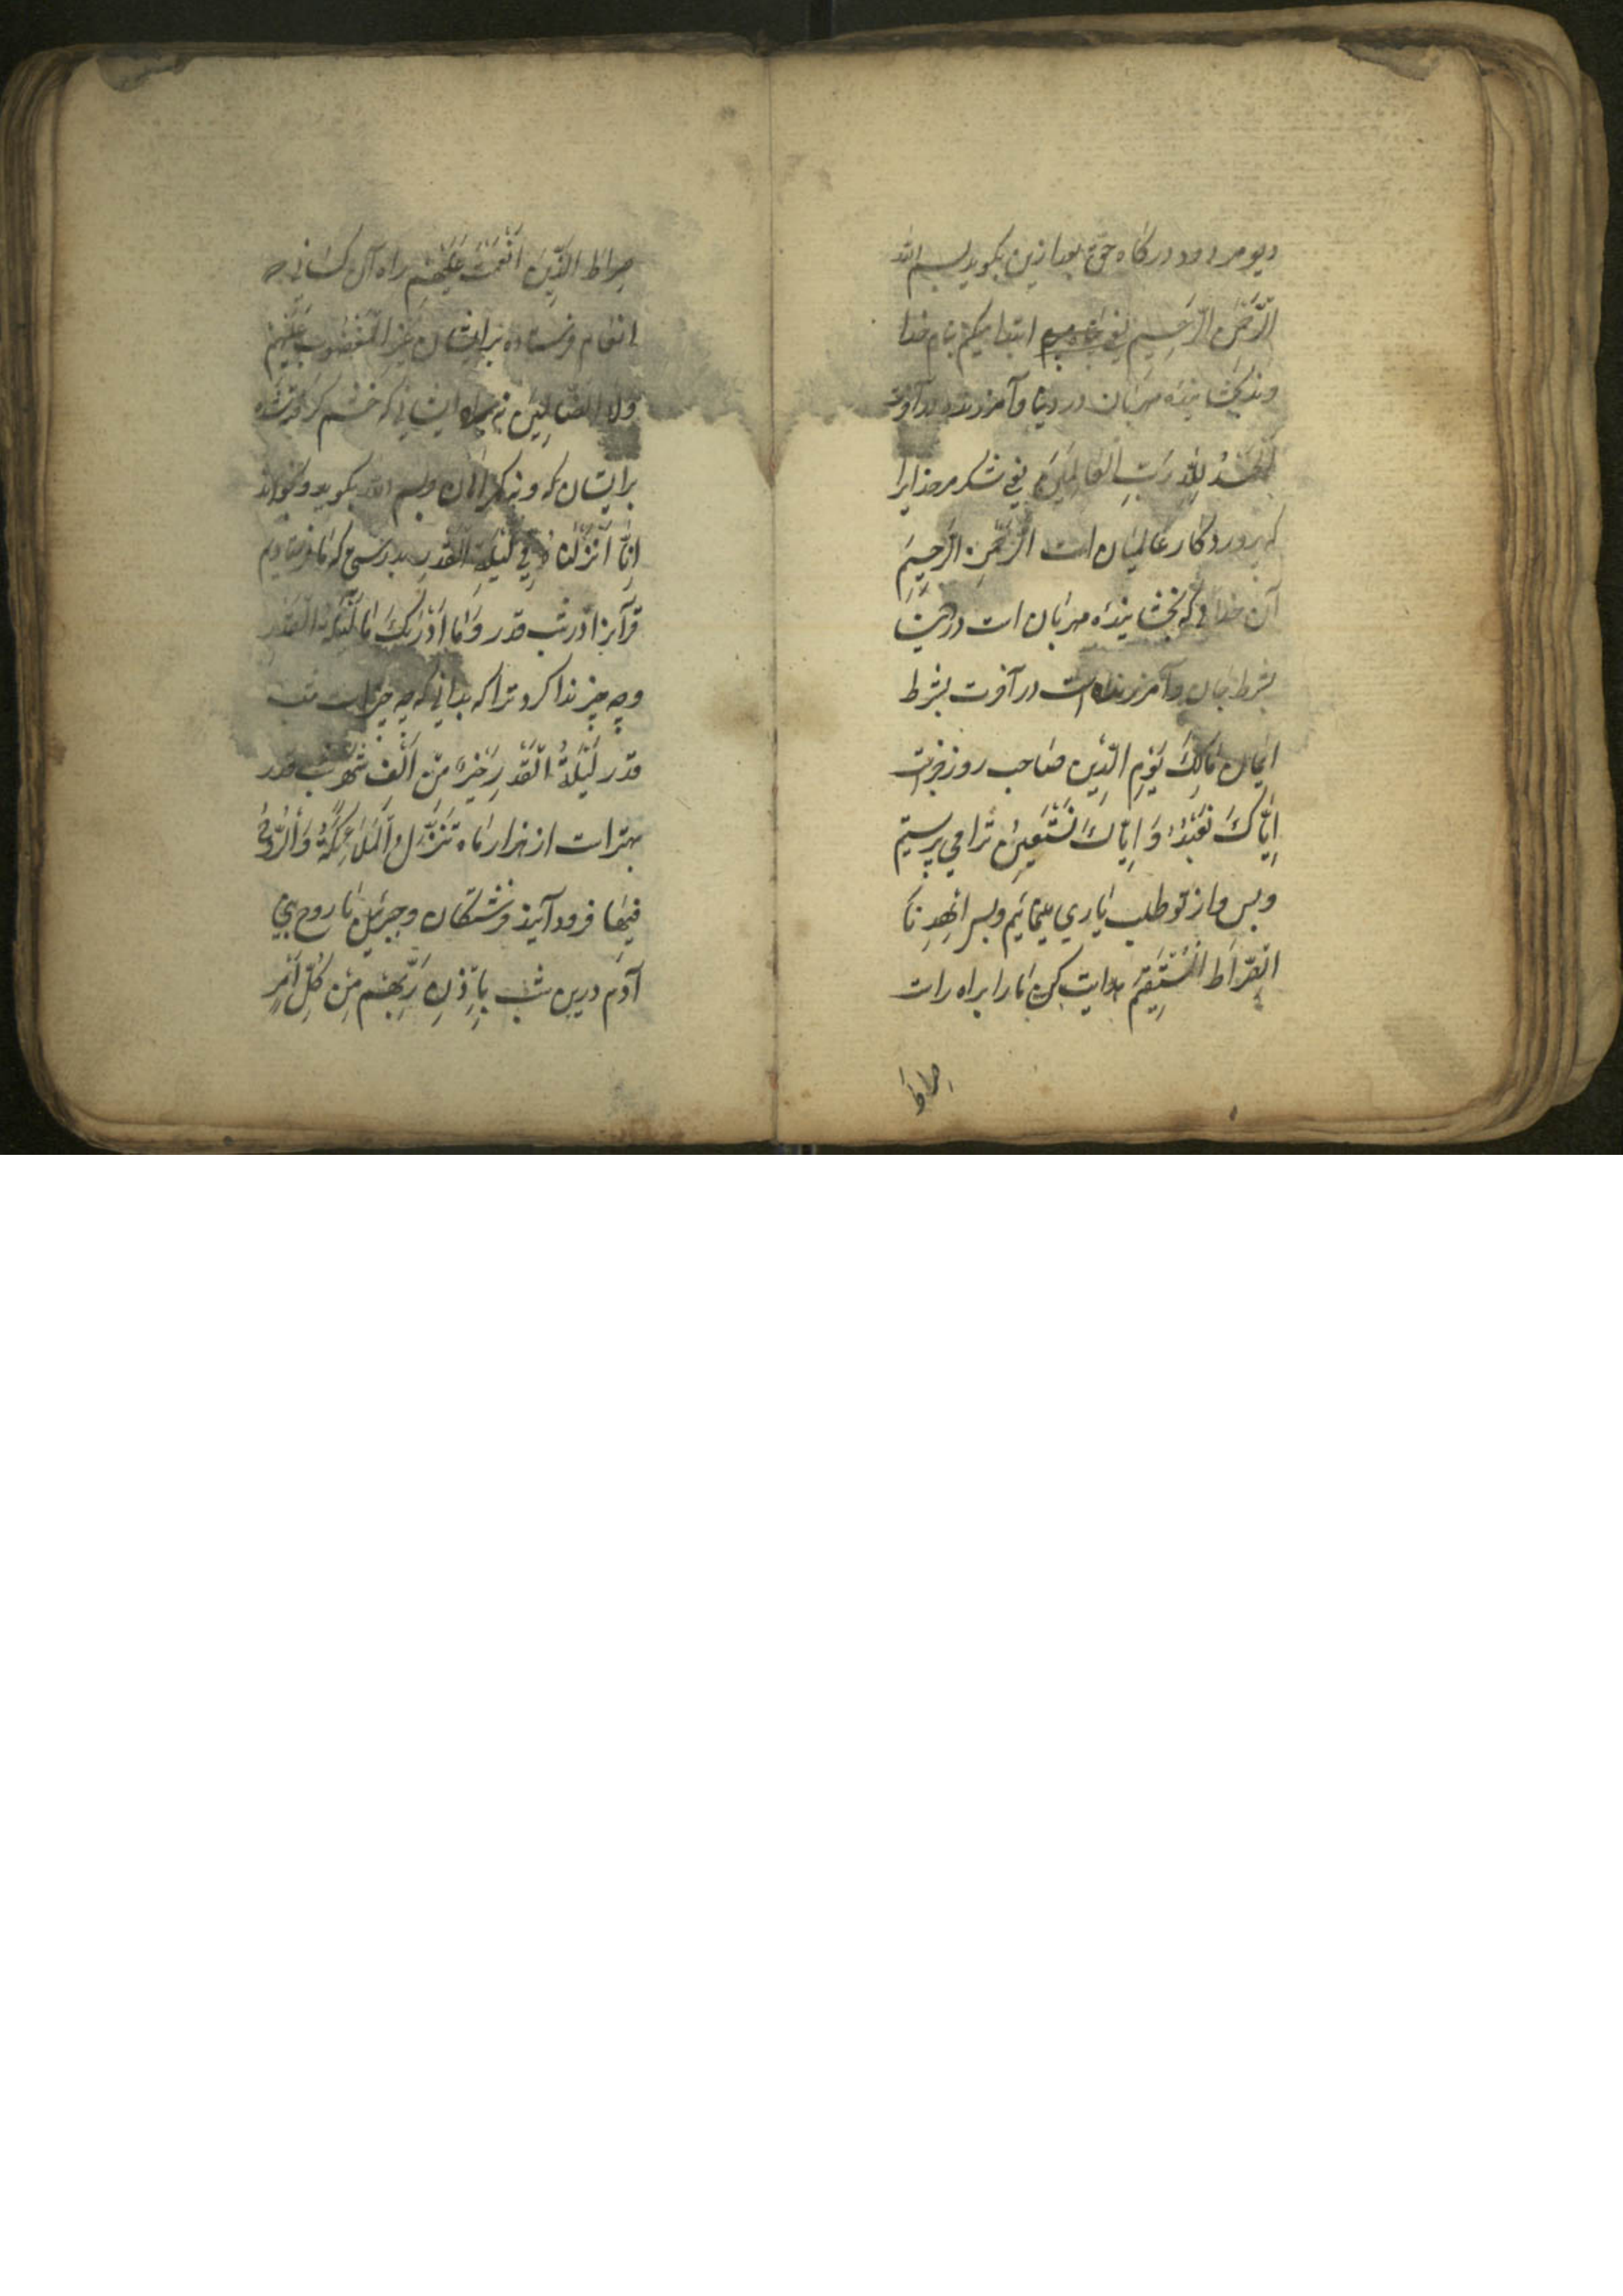 دیو مردود درکاه حق بعد ازین بکوید بسم الله
الرَّحْمنِ الرَّحِیمِ یعنی ابتدا میکنم بنام خدا
بخشاینده مهربان در دنیا وآمرزنده در آخرت
اَلْحَمْدُ لِلّهِ رَبِّ الْعالَمِینَ یعنی شکر مر خدایرا
که پروردکار عالمیان است الرَّحْمنِ الرَّحِیمِ
آن خدائی که بخشاینده مهربان است در دنیا
بشرط ایمان وآمرزنده است در آخرت بشرط
ایمان مَالِكِ یَوْمِ الدِّینِ صاحب روز جزاست
اِیَّاكَ نَعْبُدُ وَ اِیَّاكَ نَسْتَعِینُ ترا می پرستیم
وبس واز تو طلب یاری مینمائیم وبس اِهْدِنَا
الصِّرَاطَ الْمُسْتَقِیمَ هدایت کن مارا براه راست
صِراطَ
صِراطَ الَّذِینَ اَنْعَمْتَ عَلَیْهِمْ راه آن کسانی که
انعام فرستاده برایشان غَیْرِ الْمَغْضُوبِ عَلَیْهِمْ
وَلَا الضَّالِینَ نه براه اینانی که خشم کرده شده
برایشان که ونه کمراهان وبسم الله بکوید وبخواند
اِنَّا اَنْزَلْنَاهُ فِی لَیْلَةِ الْقَدْرِ بدرستی که ما فرستادیم
قرآنرا در شب قدر وَمَا اَدْرَیكَ مَا لَیْلَةُ الْقَدْرِ
وچه چیز ندا کرد ترا که بدانی که چه چیز است شب
قدر لَیْلَةُ الْقَدْرِ خَیْرٌ مِنْ اَلْفِ شَهْرٍ شب قدر
بهتر است از هزار ماه تَنَزَّلُ الْمَلَائِكَةُ وَالرُّوحُ
فِیهَا فرود آیند فرشتکان وجبرئیل با روح بنی
آدم درین شب بِاِذْنِ رَبِّهِمْ مِنْ کُلِّ اَمْرٍ